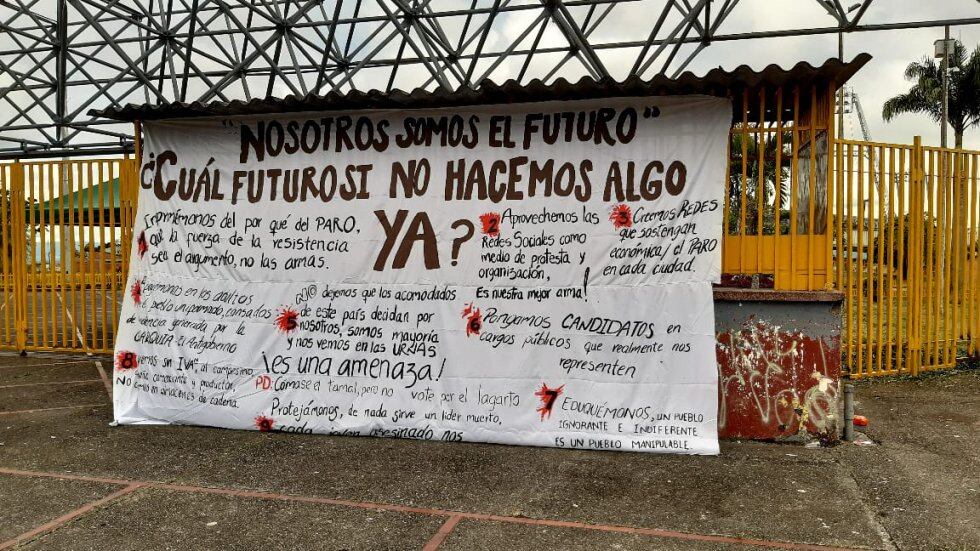 "NOSOTROS SOMOS EL FUTURO"
¿CUÁL FUTURO SI NO HACEMOS ALGO
YA?
1
del por qué del PARO,
que la fuerza de la resistencia
sea el argumento, no las armas.
2 Aprovechemos las
Redes Sociales como
medio de protesta y
organización,
Es nuestra mejor arma!
3 Creemos REDES
que sostengan
económica/ el PARO
en cada ciudad.
en los adultos
cansados
de violencia generada por la
Antigobierno
5
NO dejemos que los acomodados
de este país decidan por
nosotros, somos mayoría
y nos vemos en las URNAS
¡es una amenaza!
PD: Cómase el tamal, pero no vote por el lagarto
6 Pongamos CANDIDATOS en
cargos públicos que realmente nos
representen
7 EDUQUÉMONOS, UN PUEBLO
IGNORANTE E INDIFERENTE
ES UN PUEBLO MANIPULABLE.
8
sin IVA, al campesino,
comerciante y productor,
NO en almacenes de cadena.
9
Protejámonos, de nada sirve un líder muerto,
cada joven asesinado nos